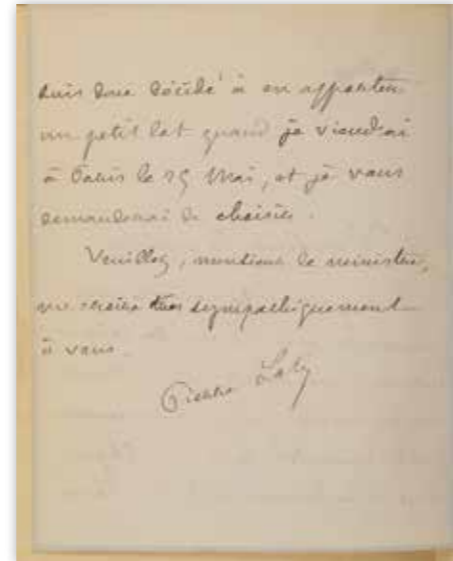 suis donc décidé à en apporter
un petit lot quand je viendrai
à Paris le 25 Mai, et je vous
demanderai de choisir.
Veuillez, monsieur le ministre,
me croire très sympathiquement
à vous.
Pierre Loty